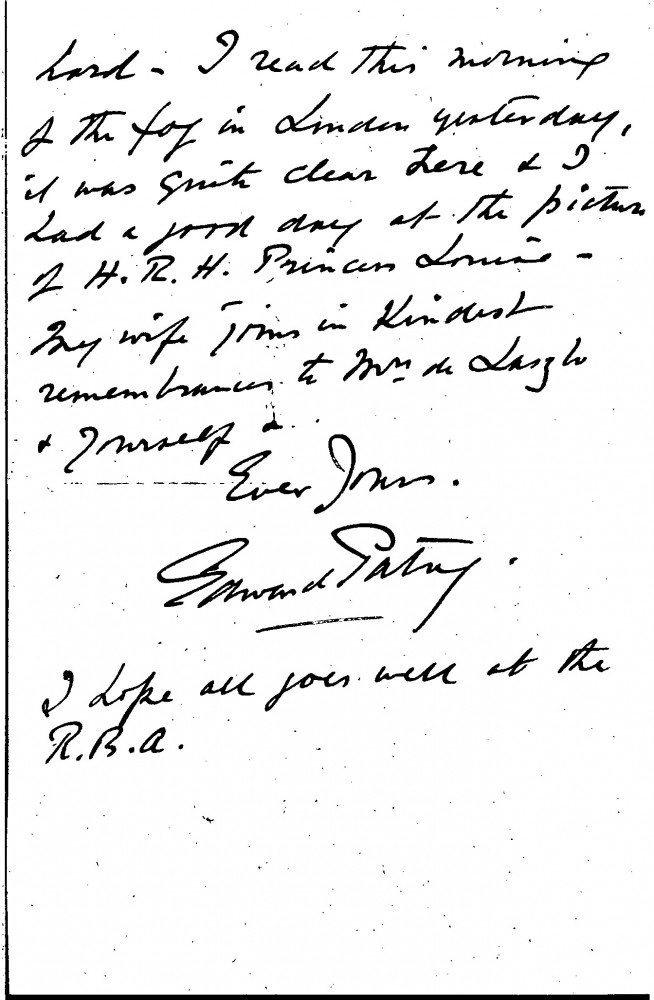 hard - I read this morning
of the fog in London yesterday,
it was quite clear here & I
had a good day at the picture
of H.R.H. Princess Louise -
My wife joins in Kindest
remembrances to Mrs de Laszlo
& Yourself &
Ever Yours.
Edward Patry.
I hope all goes well at the
R.B.A.